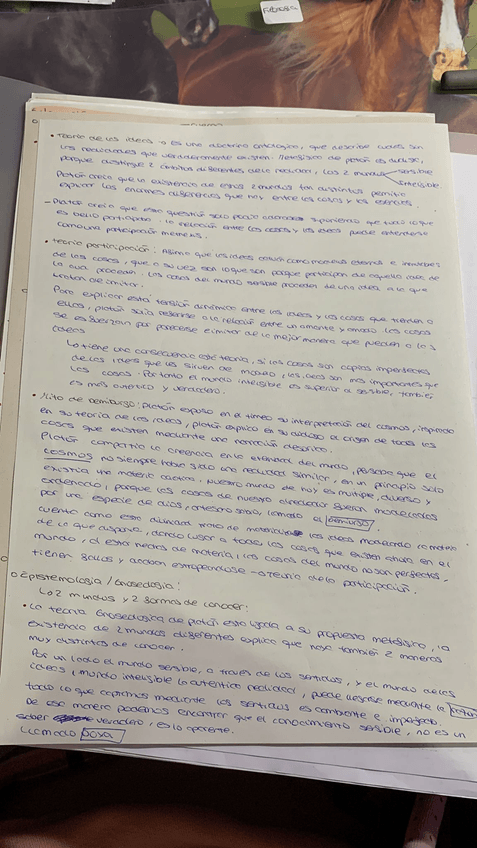 Filosofía
• Teoría de las ideas → es una doctrina ontológica, que describe cuáles son
las realidades que verdaderamente existen. Metafísica de platón es dualista,
porque distingue 2 ámbitos diferentes de la realidad, los 2 mundos sensible
inteligible
Platón creía que la existencia de estos 2 mundos tan distintos permitía
explicar las enormes diferencias que hay entre las cosas y las esencias.
- Platón creía que esta cuestión solo podía suponiendo que todo lo que
es bello participaba la relación entre las cosas y las ideas puede entenderse
como una participación
• Teoría participación: Afirma que las ideas actúan como modelos eternos e inmutables
de las cosas, que a su vez son lo que son porque participan de aquella idea de
la cual proceden. Las cosas del mundo sensible proceden de una idea, a la que
tratan de imitar.
Para explicar esta tensión dinámica entre las ideas y las cosas que tienden a
ellas, platón solía referirse a la relación entre un amante y amado. Las cosas
se esfuerzan por parecerse e imitar de la mejor manera que pueden a las
ideas
↳ tiene una consecuencia esta teoría, si las cosas son copias imperfectas
de las ideas que les sirven de modelo, las ideas son más importantes que
las cosas. Por tanto el mundo inteligible es superior a sensible, también
es más autético y verdadero.
• Mito de Demiurgo: Platón expuso en el timeo su interpretación del cosmos, inspirado
en su teoría de las ideas, platón explicó en su diálogo el origen de todas las
cosas que existen mediante una narración
Platón compartía la creencia en la eternidad del mundo, pensaba que el
cosmos no siempre había sido una realidad similar, en un principio solo
existía una materia caótica. Nuestro mundo de hoy es múltiple, diverso y
ordenado, porque las cosas de nuestro alrededor fueron modeladas
por una especie de dios, artesano sabio, llamado el demiurgo.
Cuenta como este divinidad trató de materializar las ideas modelando la materia
de la que disponía, dando lugar a todas las cosas que existen ahora en el
mundo, al estar hechas de materia, las cosas del mundo no son perfectas,
tienen fallos y acaban estropeandose → teoría de la participación.
o Epistemología / Gnoseología:
↳ 2 mundos y 2 formas de conocer:
• La teoría Gnoseologica de platón está ligada a su propuesta metafísica, la
existencia de 2 mundos diferentes explica que haya también 2 maneras
muy distintas de conocer.
Por un lado el mundo sensible, a través de los sentidos, y el mundo de las
ideas, mundo inteligible la auténtica realidad, puede llegarse mediante la
todo lo que captamos mediante los sentidos es cambiante e imperfecto.
De esa manera podemos encontrar que el conocimiento sensible, no es un
saber verdadero, es lo aparente.
Llamado Doxa